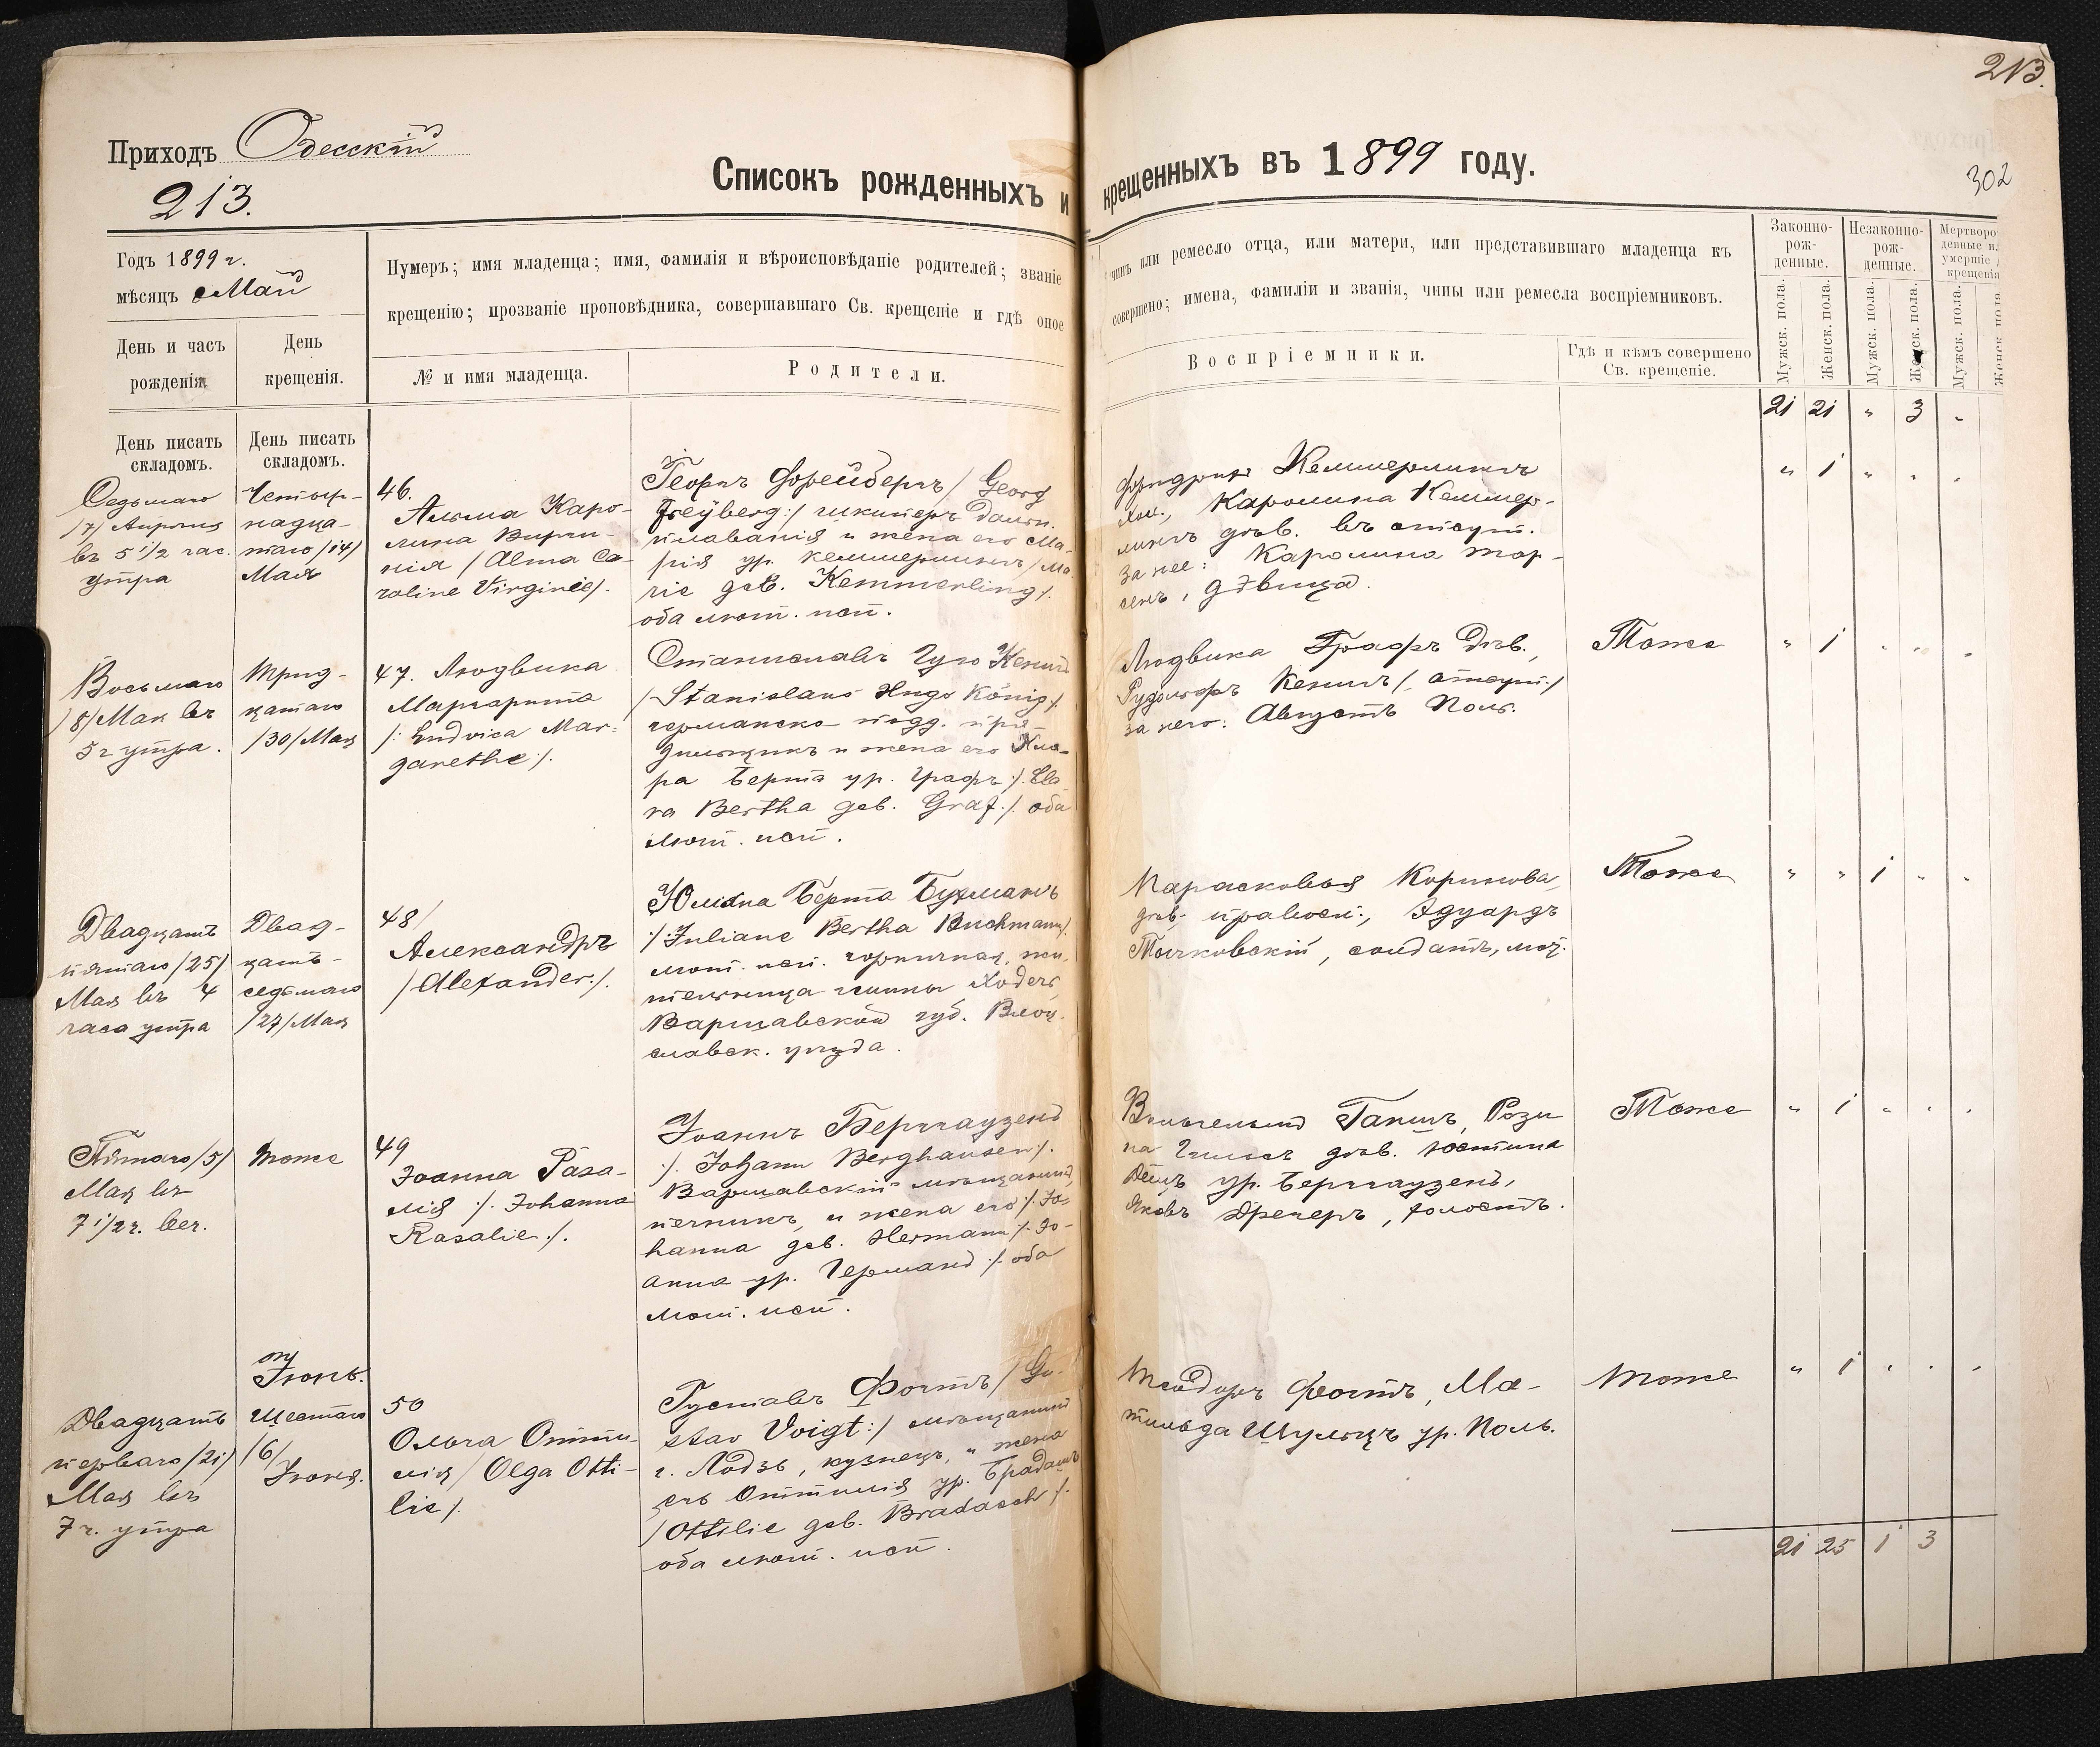 213.
302
Приходъ Одесскій
213.
Списокъ рожденныхъ и крещенныхъ въ 1899 году.
Годъ 1899 г.
мѣсяцъ Май
Нумеръ; имя младенца; имя, фамилія и вѣроисповѣданіе родителей; званіе
крещенію; прозваніе проповѣдника, совершавшаго Св. крещеніе и гдѣ оное
чинъ или ремесло отца, или матери, или представившаго младенца къ
совершено; имена, фамиліи и званія, чины или ремесла воспріемниковъ.
День и часъ
рожденія
День
крещенія.
№ и имя младенца.
Родители.
Воспріемники.
Гдѣ и кѣмъ совершено
Св. крещеніе.
Законно-
рож-
денные.
Незаконно-
рож-
денные.
Мертворо
денные и
умершіе
крещенія
Мужск. пола.
Женск. пола.
Мужск. пола.
Женск. пола.
Мужск. пола.
Женск пола
21 21 " 3 "
День писать
складомъ.
День писать
складомъ.
Седьмаго
/7/ Апрѣля
въ 5 1/2 час.
утра
Четыр-
надца-
таго /14/
Мая
46.
Альма Каро-
лина Вирги-
нія / Alma Ca-
roline Virginie/.
Георгъ Фрейбергъ / Georg
Freyberg :/ шкиперъ дальн.
плаванія и жена его Ма-
рія ур. Кеммерлингъ / Ma
rie geb. Kemmerling/.
оба лют. исп.
Кеммерлингъ
Каролина Кеммер-
лингъ дѣв. въ отсут.
за нее: Каролина Тор-
сенъ, дѣвица.
" 1 " " "
Восьмаго
/8/ Мая въ
5 ч утра.
Трид-
цатаго
/30/ Мая
47. Людвика
Маргарита
/: Ludvica Mar-
garethe/.
Станиславъ Гуго Кенигъ
/Stanislaus Hugo König/.
германско-подд. пря-
дильщикъ и жена его Кла-
ра Берта ур. Графъ :/. Cla
ra Bertha geb. Graf./. оба
лют. исп.
Людвика Графъ дѣв.,
Рудольфъ Кенигъ /отсут:/
за него: Августъ Поль.
Тоже
" 1 " " "
Двадцать
пятаго /25/
Мая въ 4
часа утра
Двад-
цать-
седьмаго
/27/ Мая
48/
Александръ
/Alexander./.
Юліана Берта Бухманъ
:/:Juliane Bertha Buchmann/.
лют. исп. горничная, жи-
тельница гмины Ходечъ
Варшавской губ. Влоц-
славск. уѣзда.
Парасковья Корикова,
дѣв. правосл., Эдуардъ
Тычковскій, солдатъ,
Тоже
" " 1 " "
Пятаго /5/
Мая въ
7 1/2 ч. веч.
тоже
49
Іоанна Роза-
лія :/. Johanna
Rosalie./.
Іоаннъ Бергхаузенъ
:/. Johann Berghausen/.
Варшавскій мѣщанинъ,
печникъ, и жена его :/. Jo-
hanna geb. Hermann :/. Іо-
анна ур. Германъ :/. оба
лют. исп.
Вильгельмъ Ганшъ, Рози
на дѣв. Юстина
ур. Бергхаузенъ,
Яковъ Дрегеръ, холостъ.
Тоже
" 1 " " "
Іюнь.
Двадцать
перваго /21/
Мая въ
7 ч. утра
Шестаго
/6/
Іюня.
50
Ольга Отти-
лія / Olga Otti-
lie/.
Густавъ Фогтъ / Gu-
stav Voigt :/ мѣщанинъ
г. Лодзь, кузнецъ, и жена
его Оттилія ур. Брадашъ
/Ottilie geb. Bradasch :/.
оба лют. исп.
Теодоръ Фогтъ, Ма-
тильда Шульцъ ур. Поль.
Тоже
" 1 " " "
21 25 1 3